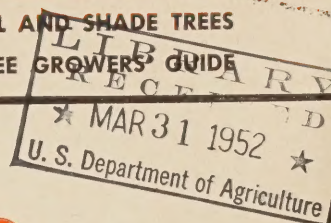 L AND SHADE TREES
EE GROWERS' GUIDE
LIBRARY
RECEIVED
★ MAR 31 1952 ★
U. S. Department of Agriculture